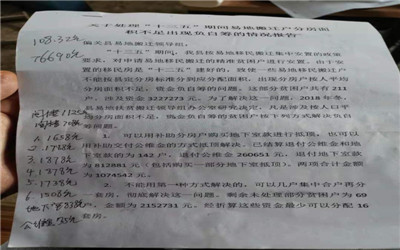 关于处理“十三五”期间易地搬迁户分房面
积不足出现负自筹的情况报告
108.32
7669
偏关县易地搬迁领导组:
“十三五”期间，我县按易地移民搬迁集中安置的政策
要求，对申请易地移民搬迁的精准贫困户进行安置，由于安
置的移民房是“十二五”建好的，致使一些易地移民搬迁户
不能按县城分房标准分到应分配面积，出现分房户按人平均
分房面积不足，资金负自筹的问题，这部分贫困户共有211
户，涉及资金3227273元，为了解决这一问题，2018年，
县易地扶贫搬迁领导组办公室研究决定，凡易地搬迁人均
面积不足，资金负自筹的贫困户按下列方式解决负自
筹问题。
1、可以用补助款分房户购买地下室款进行低顶，也可以
用补助款交付公维金的方式低顶解决。已结算退付公维金和地
下室款的为142户，退付公维金260651元，退付地下室
为812881元（包括购买一部分地下室低顶），两项合计金额
为1074542元。
2、不能用第一种方式解决的，可以几户集中合户再分
套房，彻底解决这一问题，剩余未处理部分贫困户为69
，金额为2152731元，经折算这些资金最少可以分配16
套房。
1. 1658元
2. 1778元
3. 1878元
4. 1878元
5. 1778元
6. 1508元